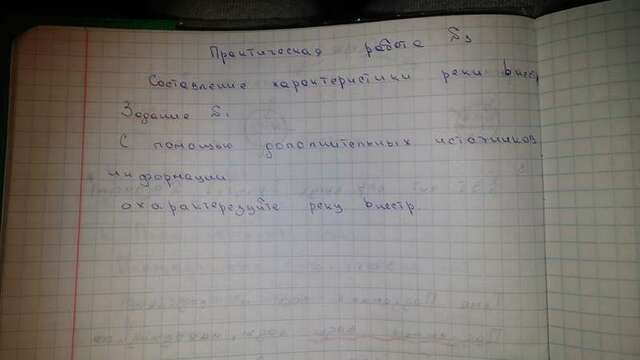 Практическая работа №3
Составление характеристики реки Днестр
Задание №1
С помощью дополнительных источников
информации
охарактерезуйте реку Днестр.